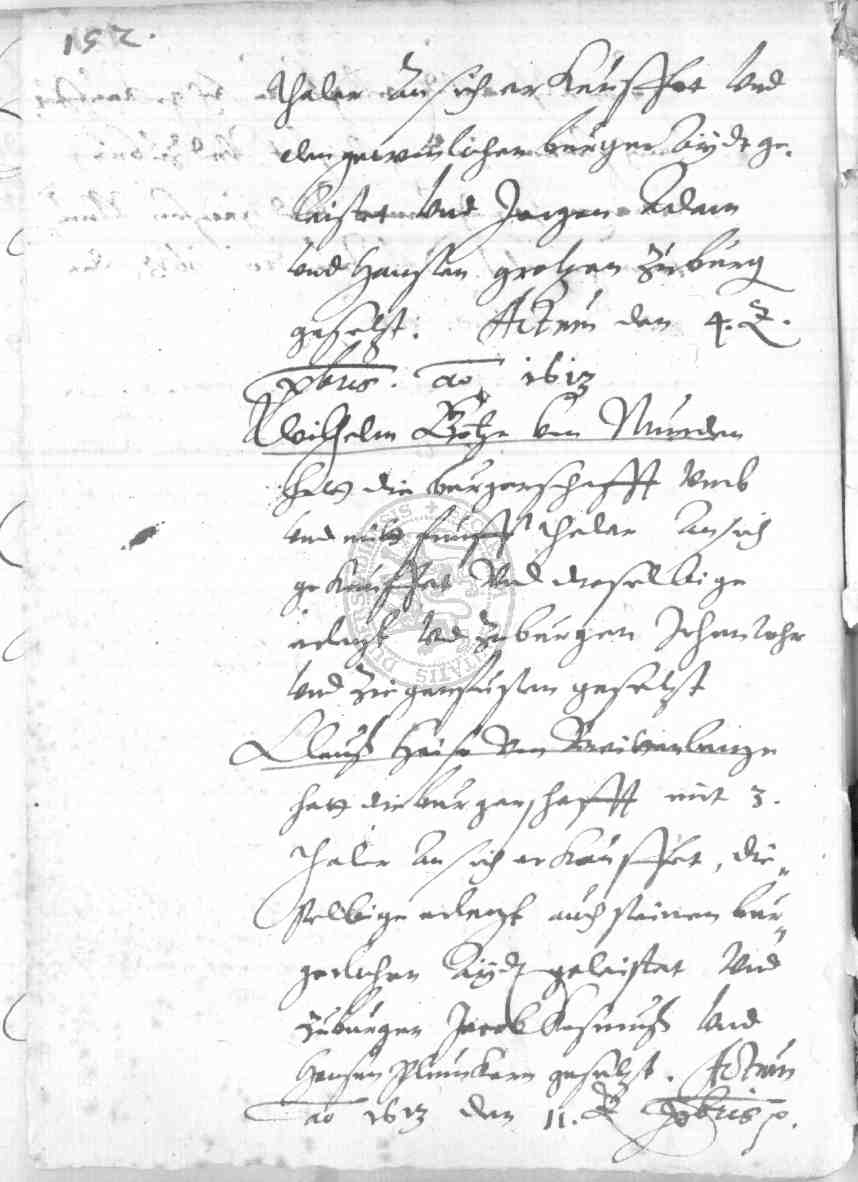 152.
thaler an sich erkeufft Und
den gewonlichen burger Aÿdt ge-
leistet Und Jorgen Adam
Und Hanssen großen Zu burg
gesetzt: Actum den 4. X
xbris. ao 1613
Wilhelm Götze von Munden
hatt die burgerschafft Umb
Und mitt funff thaler An sich
gekeufft Und dieselbige
erlegt Und Zu burgen
Und gesetzt
Clauß Heise Von
hatt die burgerschafft mit 3.
thaler An sich erkaufft, die-
selbige erlegt auch seinen bur-
gerlichen Aÿdt geleistet Und
Zu burgen Jacob Und
Hansen gesetzt. Actum
ao 1613 den 11. xbris